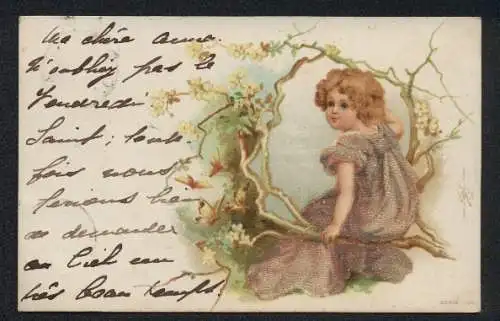 Ma chère Anna
N'oubliez pas le
Vendredi
Saint; toute
fois nous
ferions bien
de demander
au Ciel un
très beau temps.